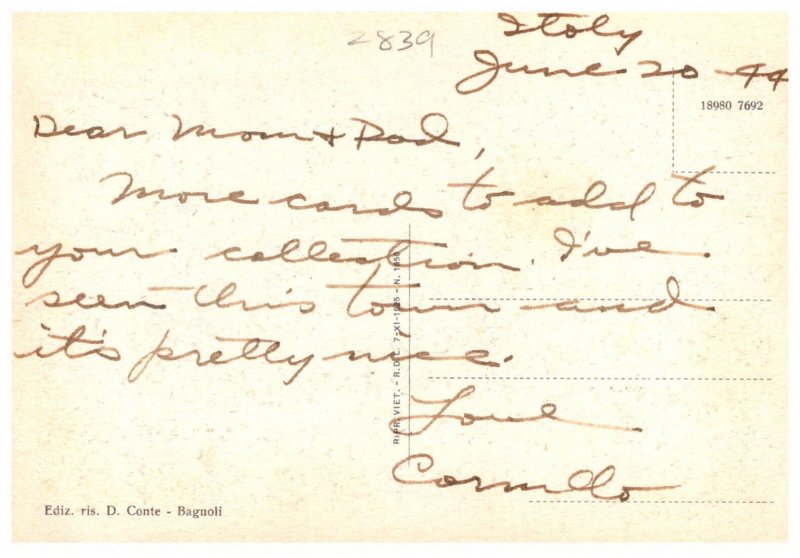 2839
Italy
June 20 - 44
18980 7692
Dear Mom + Dad,
More cards to add to
your collection. I've
seen this town and
it's pretty nice.
Love
Carmello
RIPR. VIET. - R.D.L. 7-XI-1925 - N. 1950
Ediz. ris. D. Conte - Bagnoli